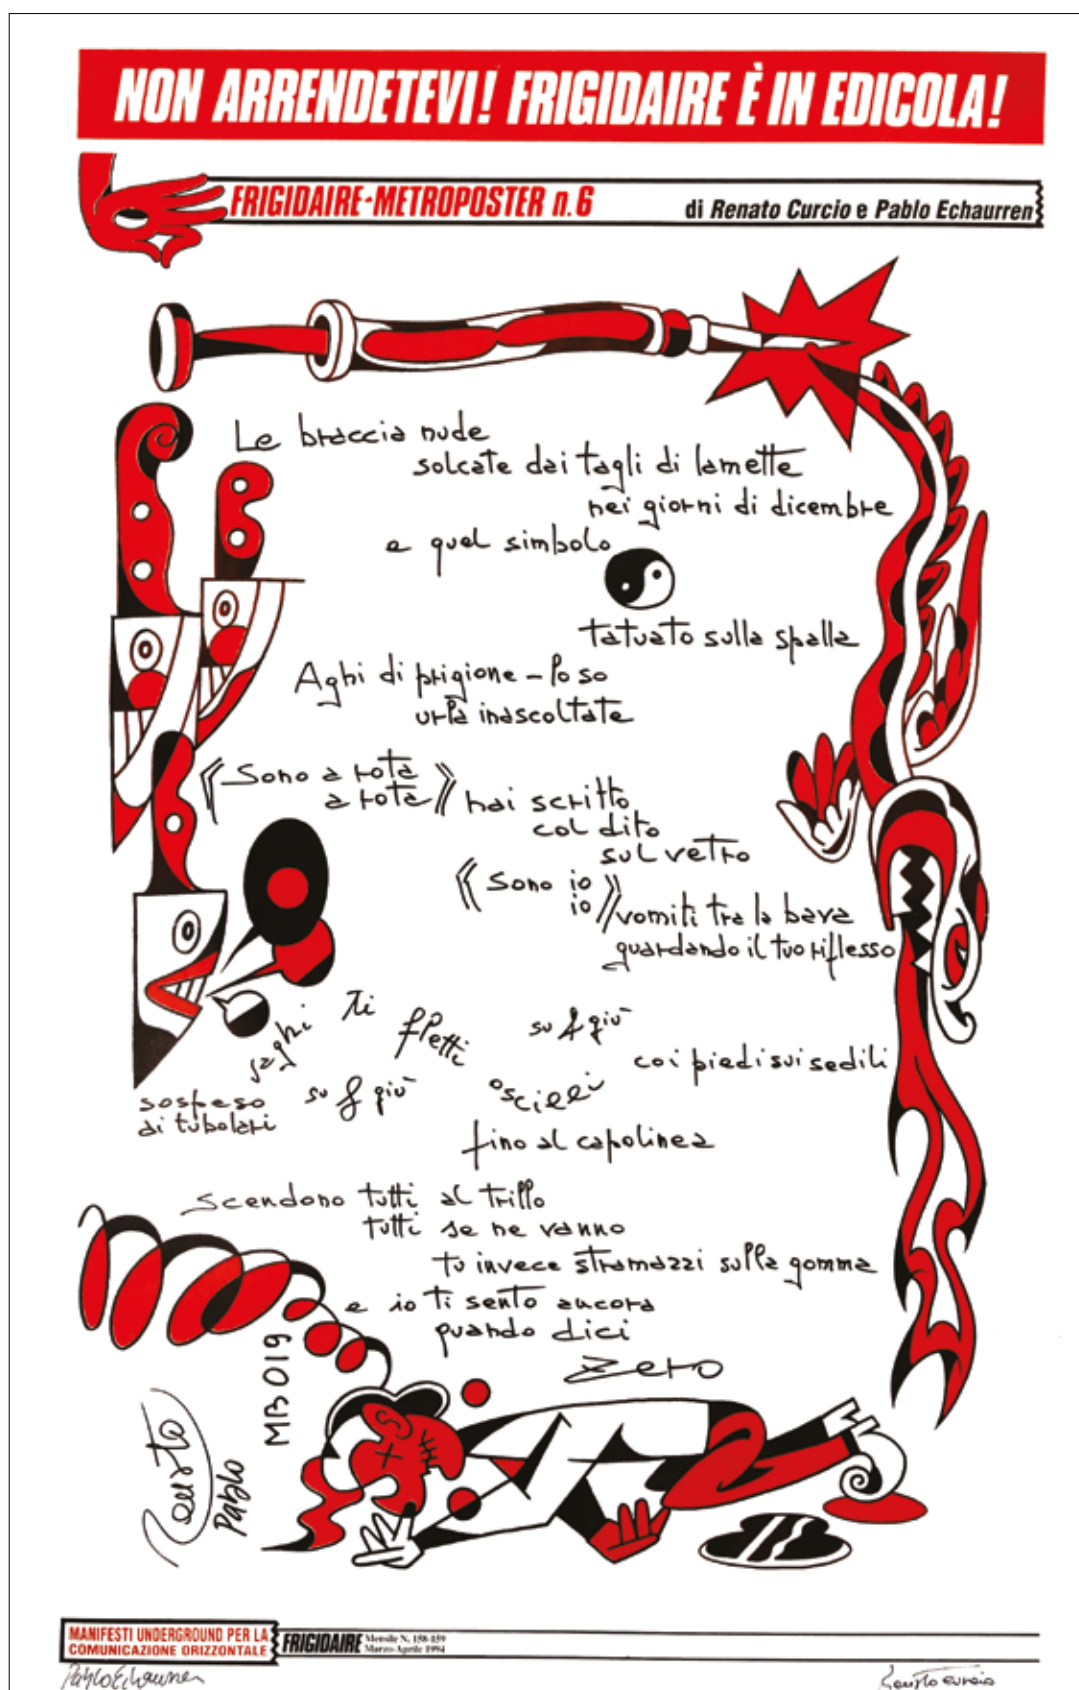 NON ARRENDETEVI! FRIGIDAIRE È IN EDICOLA!
FRIGIDAIRE-METROPOSTER n.6
di Renato Curcio e Pablo Echaurren
Le braccia nude
solcate dai tagli di lamette
nei giorni di dicembre
e quel simbolo
tatuato sulla spalla
Aghi di prigione - lo so
urla inascoltate
《Sono a rota
a rota》 hai scritto
col dito
sul vetro
《Sono io
io》 vomiti tra la bava
guardando il tuo riflesso
saghi ti fletti su & giù
coi piedi sui sedili
sospeso
ai tubolari
su & giù
oscilli
fino al capolinea
scendono tutti al trillo
tutti se ne vanno
tu invece stramazzi sulla gomma
e io ti sento ancora
quando dici
Zero
MB019
Renato
Pablo
MANIFESTI UNDERGROUND PER LA
COMUNICAZIONE ORIZZONTALE
FRIGIDAIRE
Mensile N. 158-159
Marzo-Aprile 1994
Pablo Echaurren
Renato Curcio